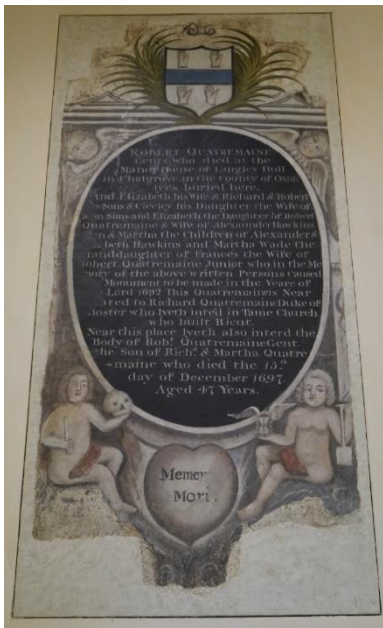 ROBERT QUATREMAINE
Gent: who died at the
Manor House of Langley Hall
in Chalgrove in the County of Oxon
lyes buried here,
And Elizabeth his Wife & Richard & Robert
Sons & Ceceley his Daughter the Wife of
Sims and Elizabeth the Daughter of Robert
Quatremaine & Wife of Alexander Hawkins
& Martha the Children of Alexander &
beth Hawkins and Martha Wade the
randdaughter of Frances the Wife of
obert Quatremaine Junior who in the Me
mory of the above written Persons Caused
Monument to be made in the Yeare of
Lord 1692 This Quatremaine is Near
ted to Richard Quatremaine Duke of
loster who lyeth inter'd in Tame Church
who built Ricut.
Near this place lyeth also interd the
Body of Robt. Quatremaine Gent
the Son of Richd. & Martha Quatre
-maine who died the 15th
day of December 1697.
Aged 47 Years.
Memen
Mori.